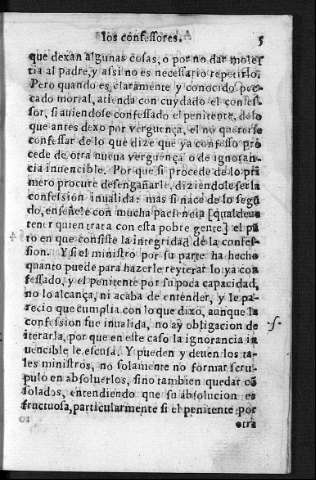 los confessores. 5
que dexan algunas cosas, o por no dar moles
tia al padre, y assi no es necessario repetirlo.
Pero quando es claramente y conocido pe-
cado mortal, atienda con cuydado el confes-
sor, si auiendose confessado el penitente, de lo
que antes dexo por verguença, el no quererse
confessar de lo que dize que ya confesso pro
cede de otra nueua verguença o de ignoran-
cia inuencible. Por que si procede de lo pri
mero procure desengañarle, diziendole ser la
confession inualida: mas si nace de lo segũ
do, enseñele con mucha paciencia [qual deue
tener quien trata con esta pobre gente] el pũ
to en que consiste la integridad de la confes-
sion. Y si el ministro por su parte ha hecho
quanto puede para hazerle reyterar lo ya con
fessado, y el penitente por su poca capacidad,
no lo alcança, ni acaba de entender, y le pa-
recio que cumplia con lo que dixo, aunque la
confession fue inualida, no ay obligacion de
iterarla, por que en este caso la ignorancia in
uencible le escusa. Y pueden y deuen los ta-
les ministros, no solamente no formar scru-
pulo en absoluerlos, sino tambien quedar cõ
solados, entendiendo que su absolucion es
fructuosa, particularmente si el penitente por
otra